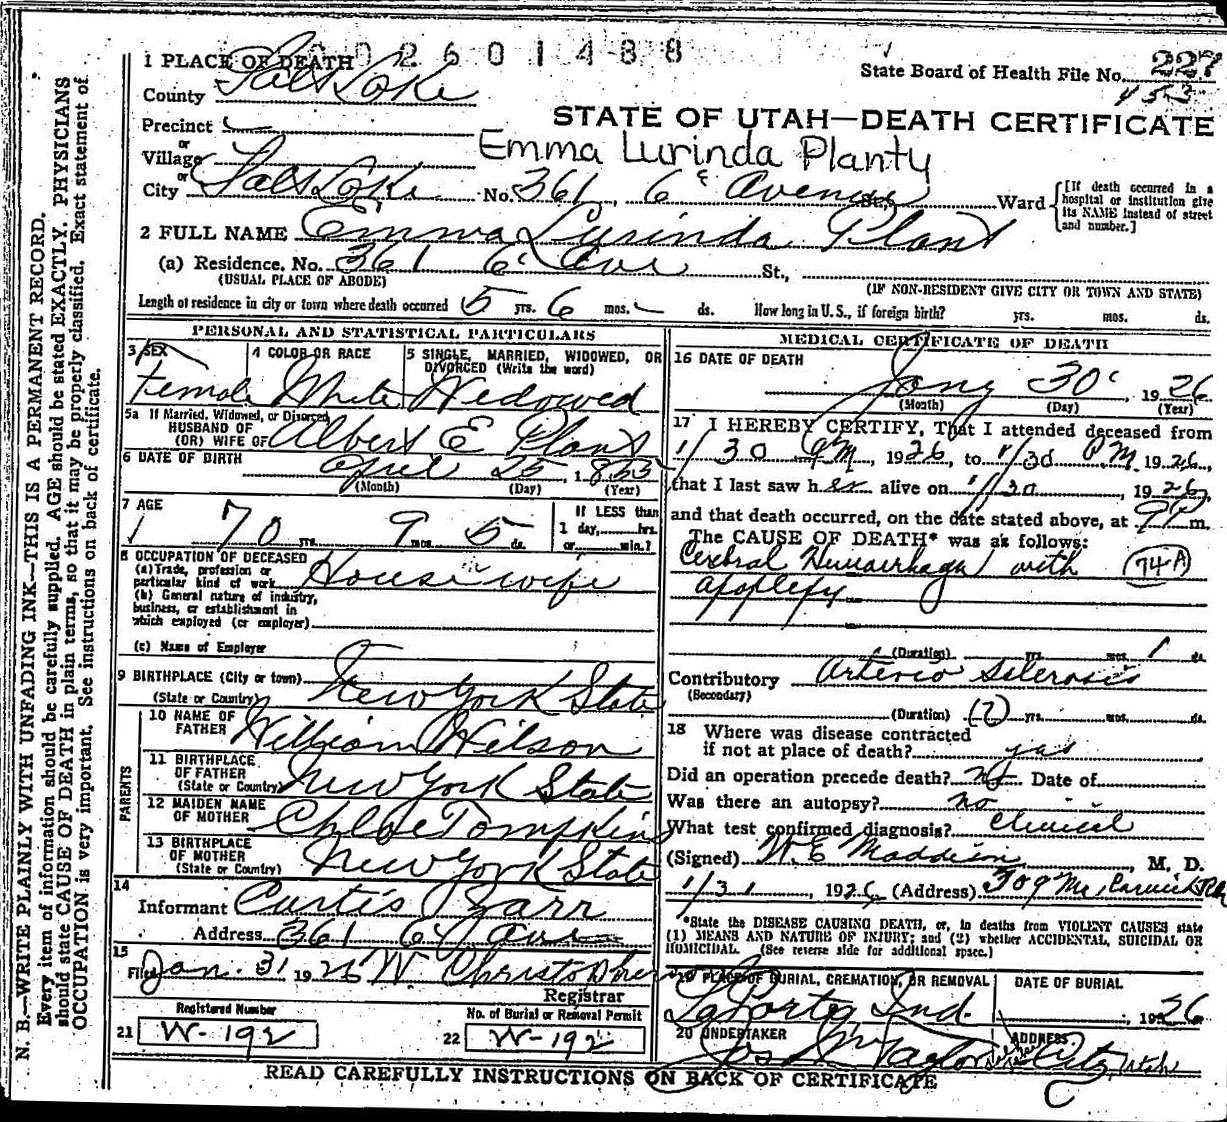 002601488
1 PLACE OF DEATH
State Board of Health File No. 227
453
County Salt Lake
STATE OF UTAH—DEATH CERTIFICATE
Precinct
or
Village
Emma Lurinda Planty
or
City Salt Lake No. 361, 6th Avenue St., Ward
[If death occurred in a hospital or institution give its NAME instead of street and number.]
2 FULL NAME Emma Lurinda Plant
(a) Residence. No. 361 6th Ave St.,
(USUAL PLACE OF ABODE) (IF NON-RESIDENT GIVE CITY OR TOWN AND STATE)
Length of residence in city or town where death occurred 5 yrs. 6 mos. ds. How long in U. S., if foreign birth? yrs. mos. ds.
PERSONAL AND STATISTICAL PARTICULARS
3 SEX 4 COLOR OR RACE 5 SINGLE, MARRIED, WIDOWED, OR
DIVORCED (Write the word)
Female White Widowed
5a If Married, Widowed, or Divorced
HUSBAND OF
(OR) WIFE OF Albert E Plant
6 DATE OF BIRTH April 25, 1853
(Month) (Day) (Year)
7 AGE
70 yrs. 9 mos. 5 ds.
If LESS than
1 day, hrs.
or min.?
8 OCCUPATION OF DECEASED
(a) Trade, profession or
particular kind of work Housewife
(b) General nature of industry,
business, or establishment in
which employed (or employer)
(c) Name of Employer
9 BIRTHPLACE (City or town)
(State or Country) New York State
PARENTS
10 NAME OF
FATHER William Wilson
11 BIRTHPLACE
OF FATHER
(State or Country) New York State
12 MAIDEN NAME
OF MOTHER Chloe Tompkins
13 BIRTHPLACE
OF MOTHER
(State or Country) New York State
14
Informant Curtis Barr
Address 361 6th Ave
15
Filed Jan. 31 1926 W Christopherson
Registrar
Registered Number No. of Burial or Removal Permit
21 W-192 22 W-192
MEDICAL CERTIFICATE OF DEATH
16 DATE OF DEATH
Jany 30, 1926
(Month) (Day) (Year)
17 I HEREBY CERTIFY, That I attended deceased from
1/30 PM, 1926, to 1/30 PM 1926,
that I last saw her alive on 1/30, 1926,
and that death occurred, on the date stated above, at 9 P m.
The CAUSE OF DEATH* was as follows:
Cerebral Hemorrhage with (74-A)
apoplexy
(Duration) yrs. mos. 1 ds.
Contributory Arterio Sclerosis
(Secondary)
(Duration) (?) yrs. mos. ds.
18 Where was disease contracted
if not at place of death? yes
Did an operation precede death? no Date of
Was there an autopsy? no
What test confirmed diagnosis? Clinical
(Signed) W. E. Maddison, M. D.
1/31, 1926 (Address)
*State the DISEASE CAUSING DEATH, or, in deaths from VIOLENT CAUSES state
(1) MEANS AND NATURE OF INJURY; and (2) whether ACCIDENTAL, SUICIDAL OR
HOMICIDAL. (See reverse side for additional space.)
19 PLACE OF BURIAL, CREMATION, OR REMOVAL DATE OF BURIAL
LaPorte, Ind. , 1926
20 UNDERTAKER ADDRESS
Jos Wm Taylor City, Utah
READ CAREFULLY INSTRUCTIONS ON BACK OF CERTIFICATE
N. B.—WRITE PLAINLY WITH UNFADING INK—THIS IS A PERMANENT RECORD.
Every item of information should be carefully supplied. AGE should be stated EXACTLY. PHYSICIANS
should state CAUSE OF DEATH in plain terms, so that it may be properly classified. Exact statement of
OCCUPATION is very important. See instructions on back of certificate.